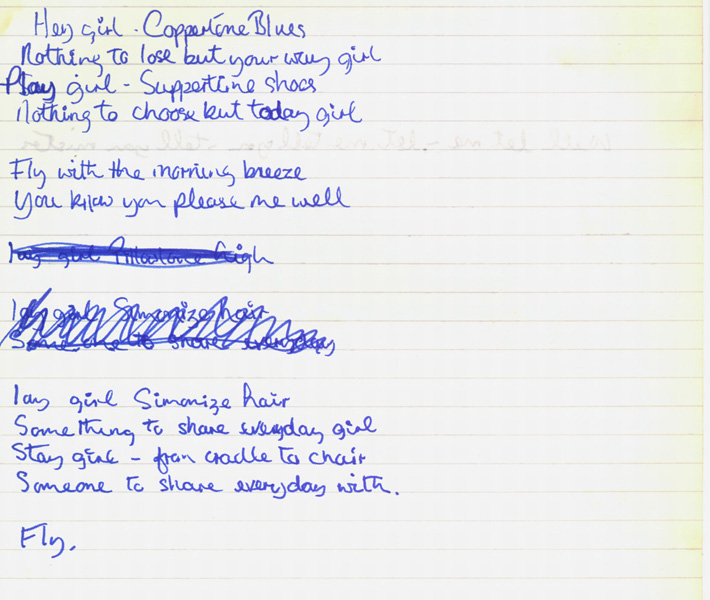 Hey girl - Coppertone Blues
Nothing to lose but your way girl
Play girl - Suppertime shoes
Nothing to choose but today girl
Fly with the morning breeze
You know you please me well
lay girl high
lay girl Simonize hair
Someone to share everyday
lay girl Simonize hair
Something to share everyday girl
Stay girl - from cradle to chair
Someone to share everyday with.
Fly.